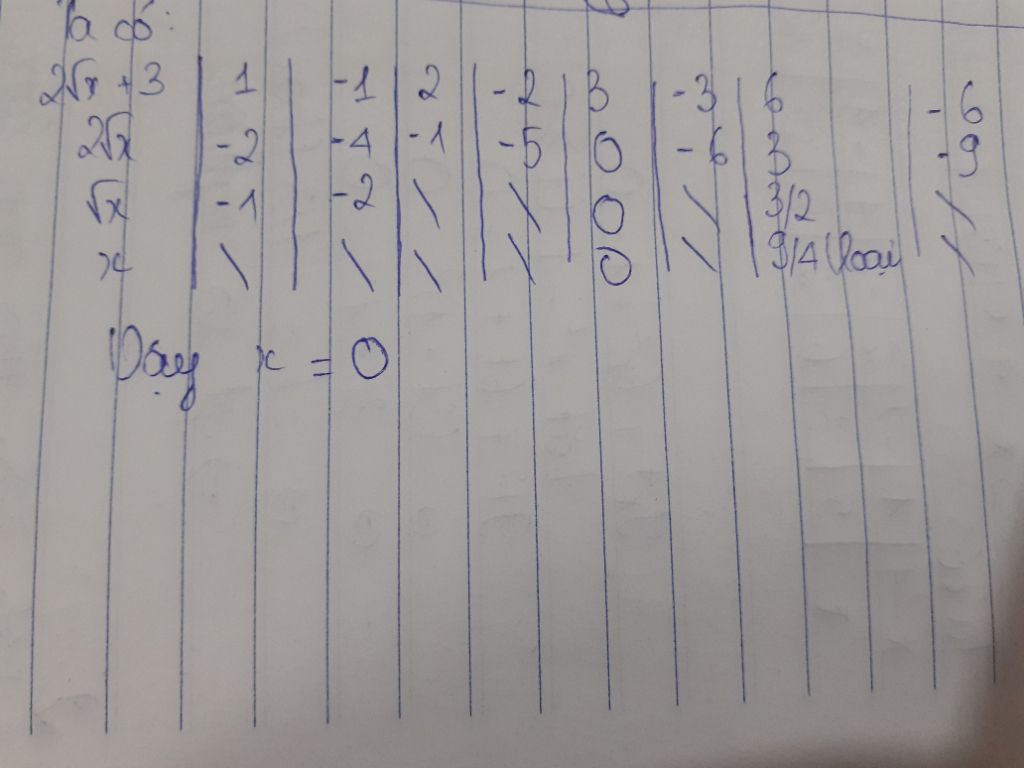 Ta có:
2√x + 3 | 1 | -1 | 2 | -2 | 3 | -3 | 6 | -6
2√x | -2 | -4 | -1 | -5 | 0 | -6 | 3 | -9
√x | -1 | -2 | \ | \ | 0 | \ | 3/2 | \
x | \ | \ | \ | \ | 0 | \ | 9/4 (loại | \
Vậy x = 0